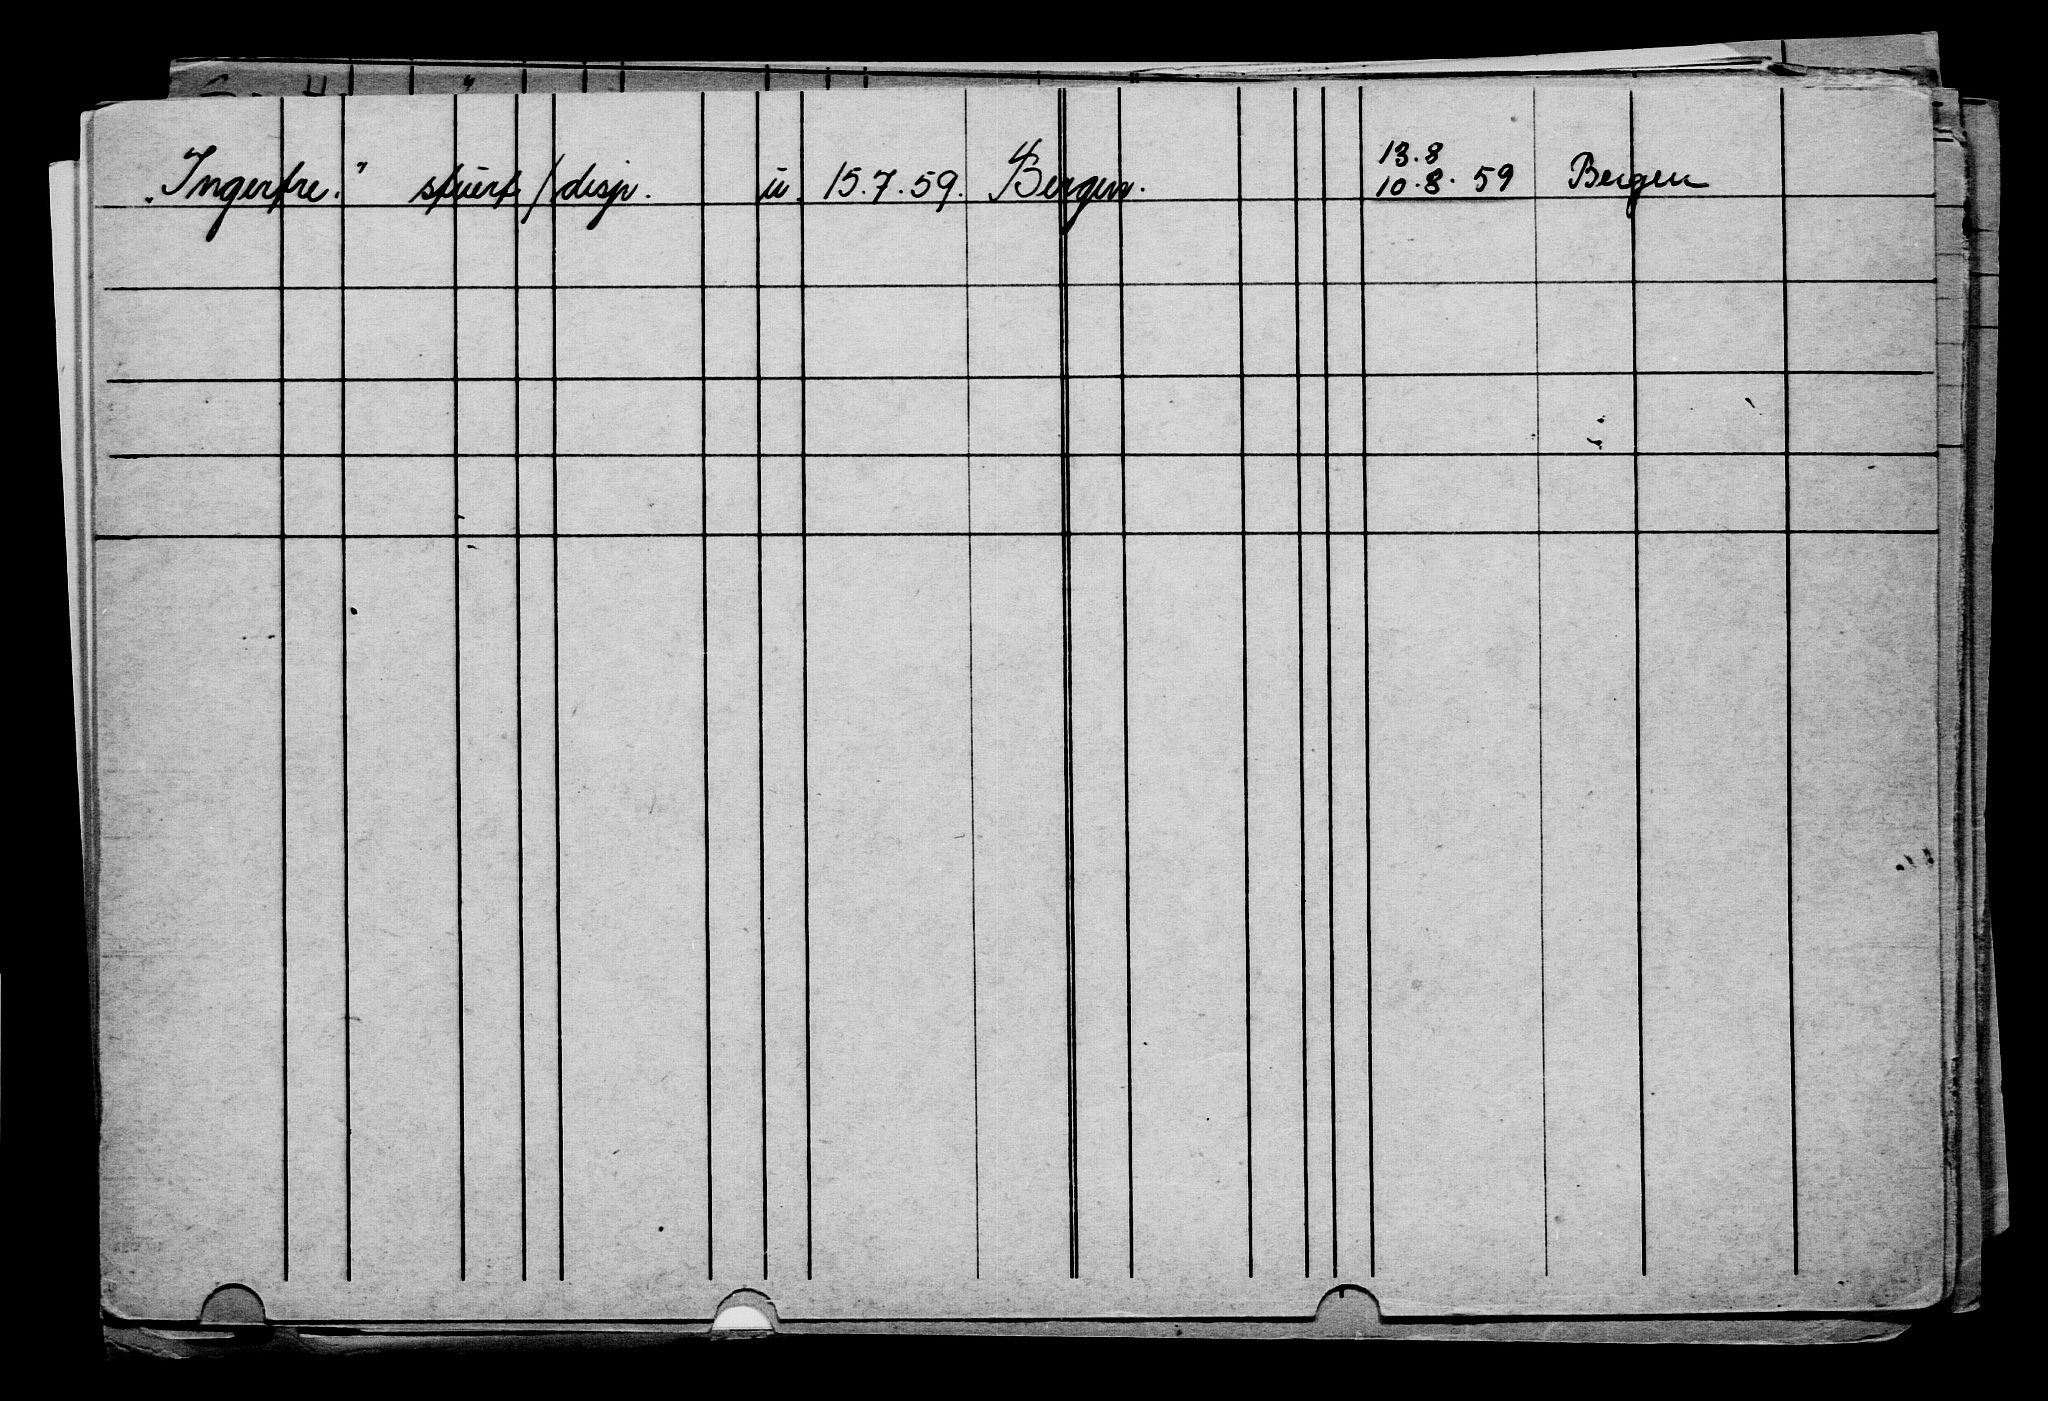 „Ingerfre." stuert/disp. u. 15.7.59. Bergen. 13.8
10.8.59 Bergen